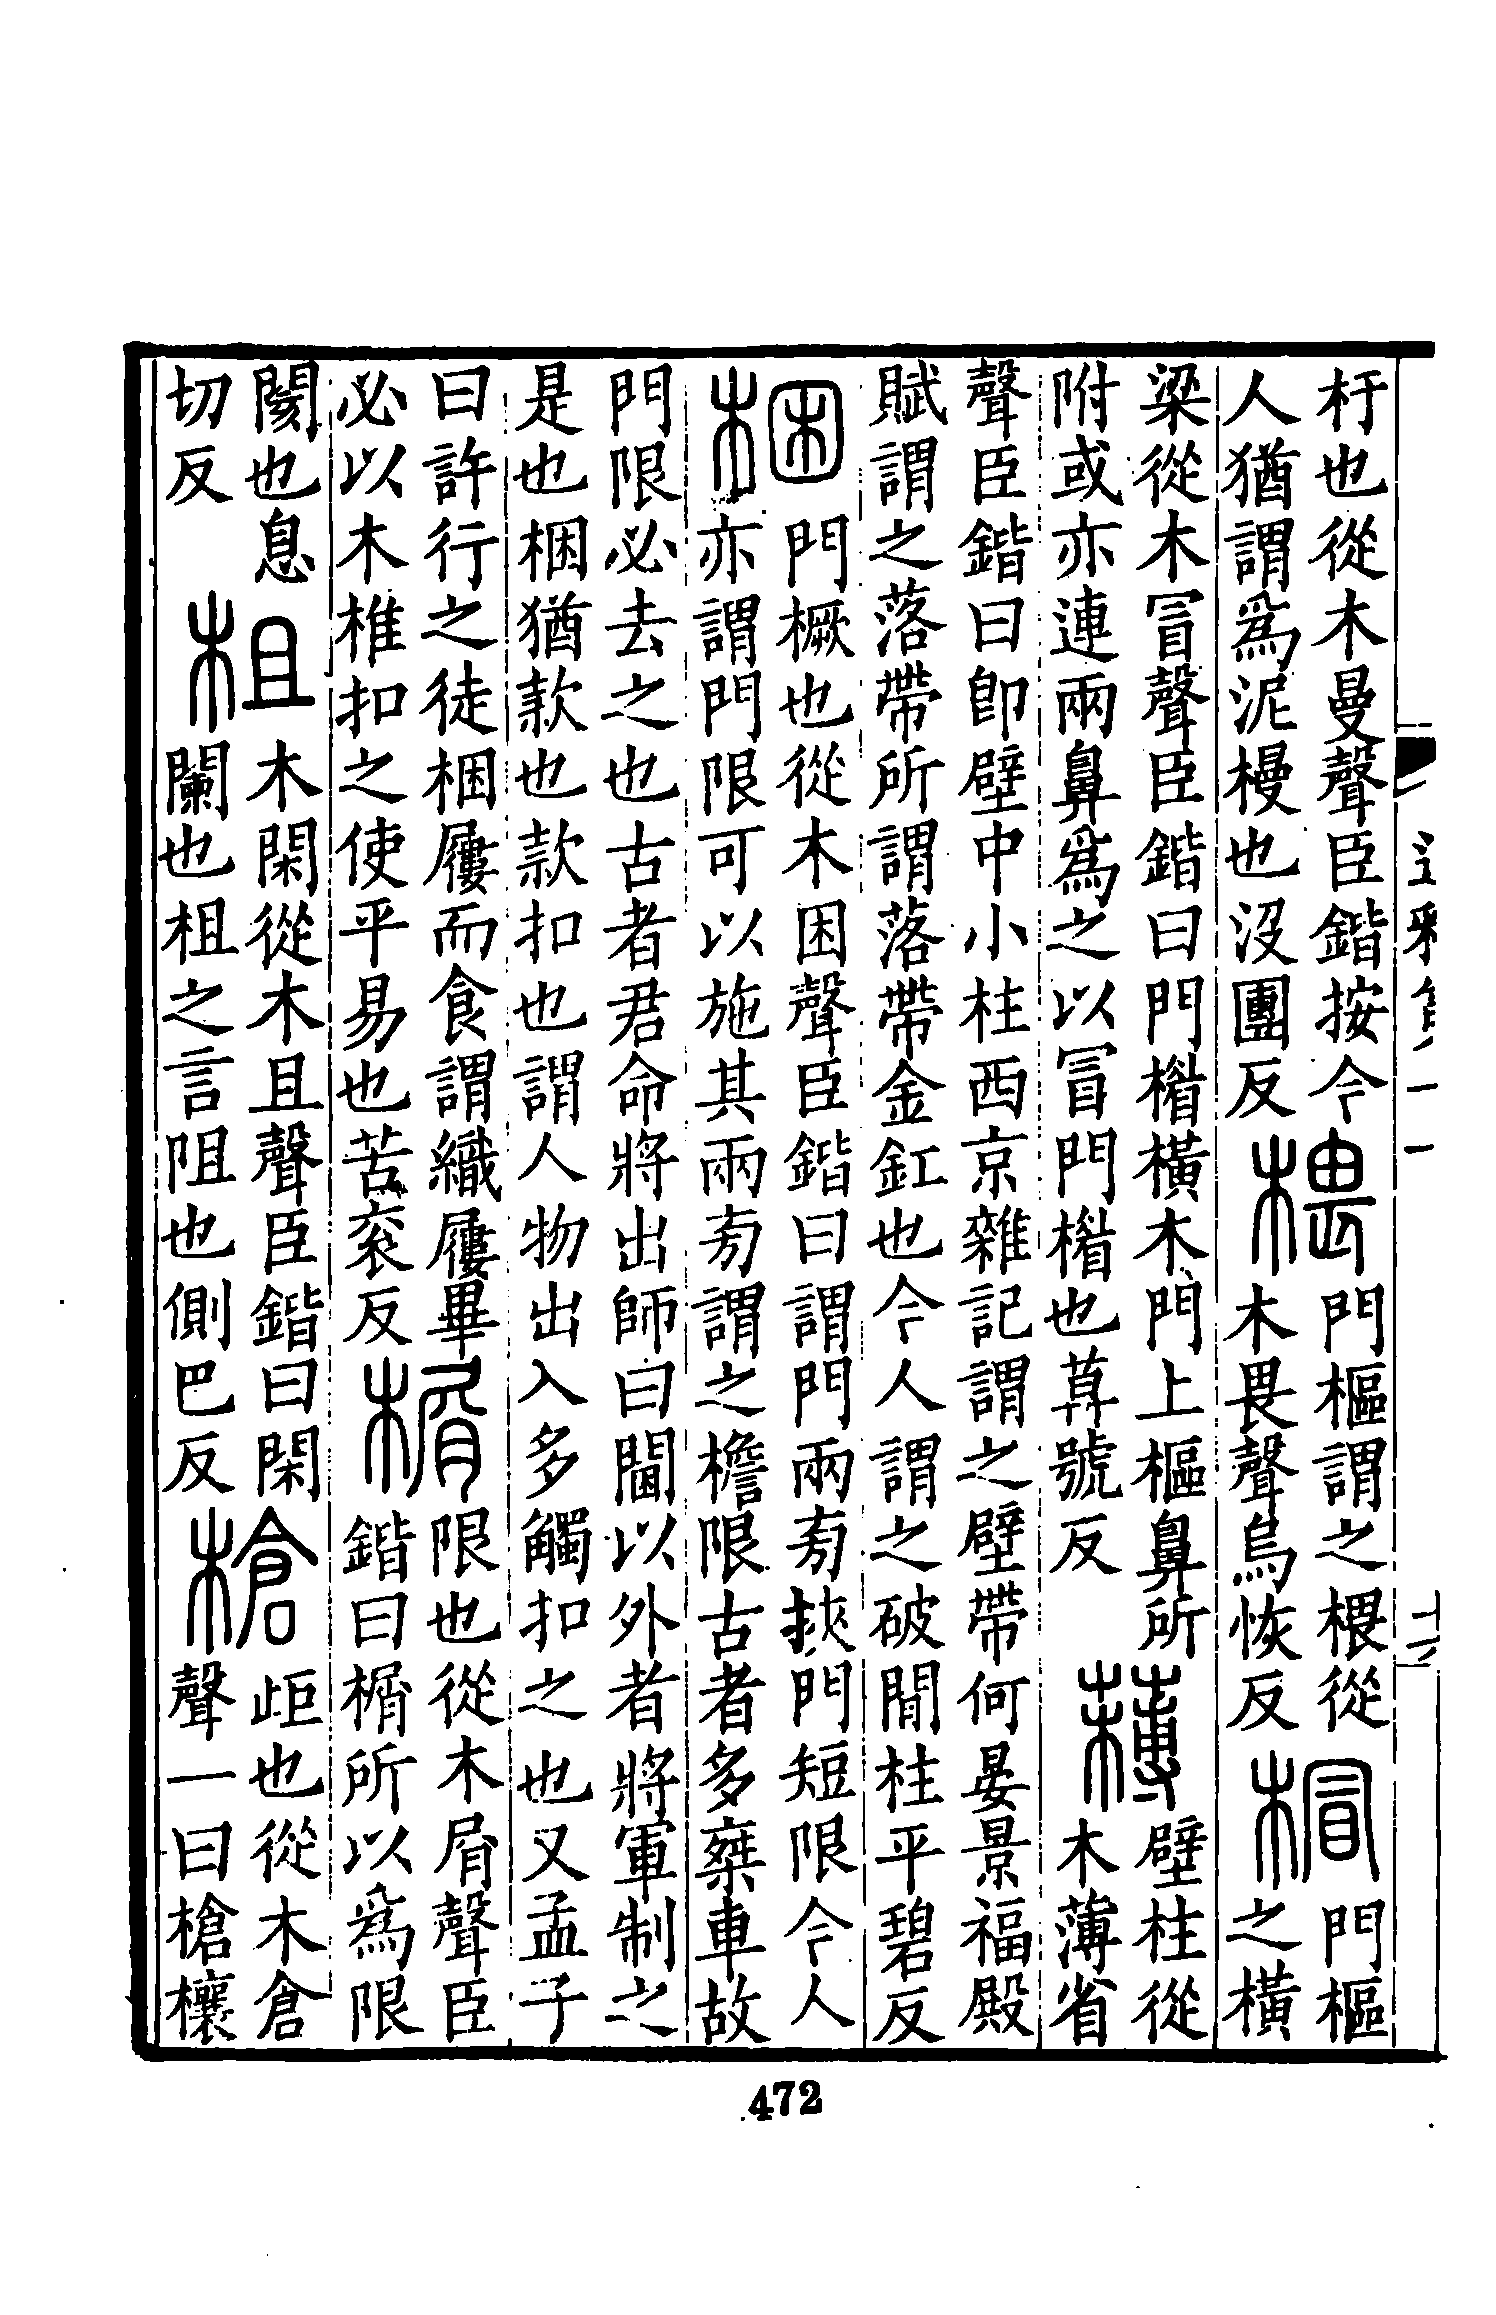 杇也從木曼聲臣鍇按今
人猶謂爲泥槾也沒團反
椳
門樞謂之椳從
木畏聲烏恢反
㮘
門樞
之橫
梁從木冒聲臣鍇曰門㮘橫木門上樞鼻所
附或亦連兩鼻爲之以冒門㮘也莫號反
欂
壁柱從
木薄省
聲臣鍇曰卽壁中小柱西京雜記謂之壁帶何晏景福殿
賦謂之落帶所謂落帶金釭也今人謂之破閒柱平碧反
梱
門橛也從木困聲臣鍇曰謂門兩旁挾門短限今人
亦謂門限可以施其兩旁謂之檐限古者多椉車故
門限必去之也古者君命將出師曰閫以外者將軍制之
是也梱猶款也款扣也謂人物出入多觸扣之也又孟子
曰許行之徒梱屨而食謂織屨畢
必以木椎扣之使平易也苦衮反
榍
限也從木屑聲臣
鍇曰榍所以爲限
也息
切反
柤
木閑從木且聲臣鍇曰閑
闌也柤之言阻也側巴反
槍
岠也從木倉
聲一曰槍欀
472